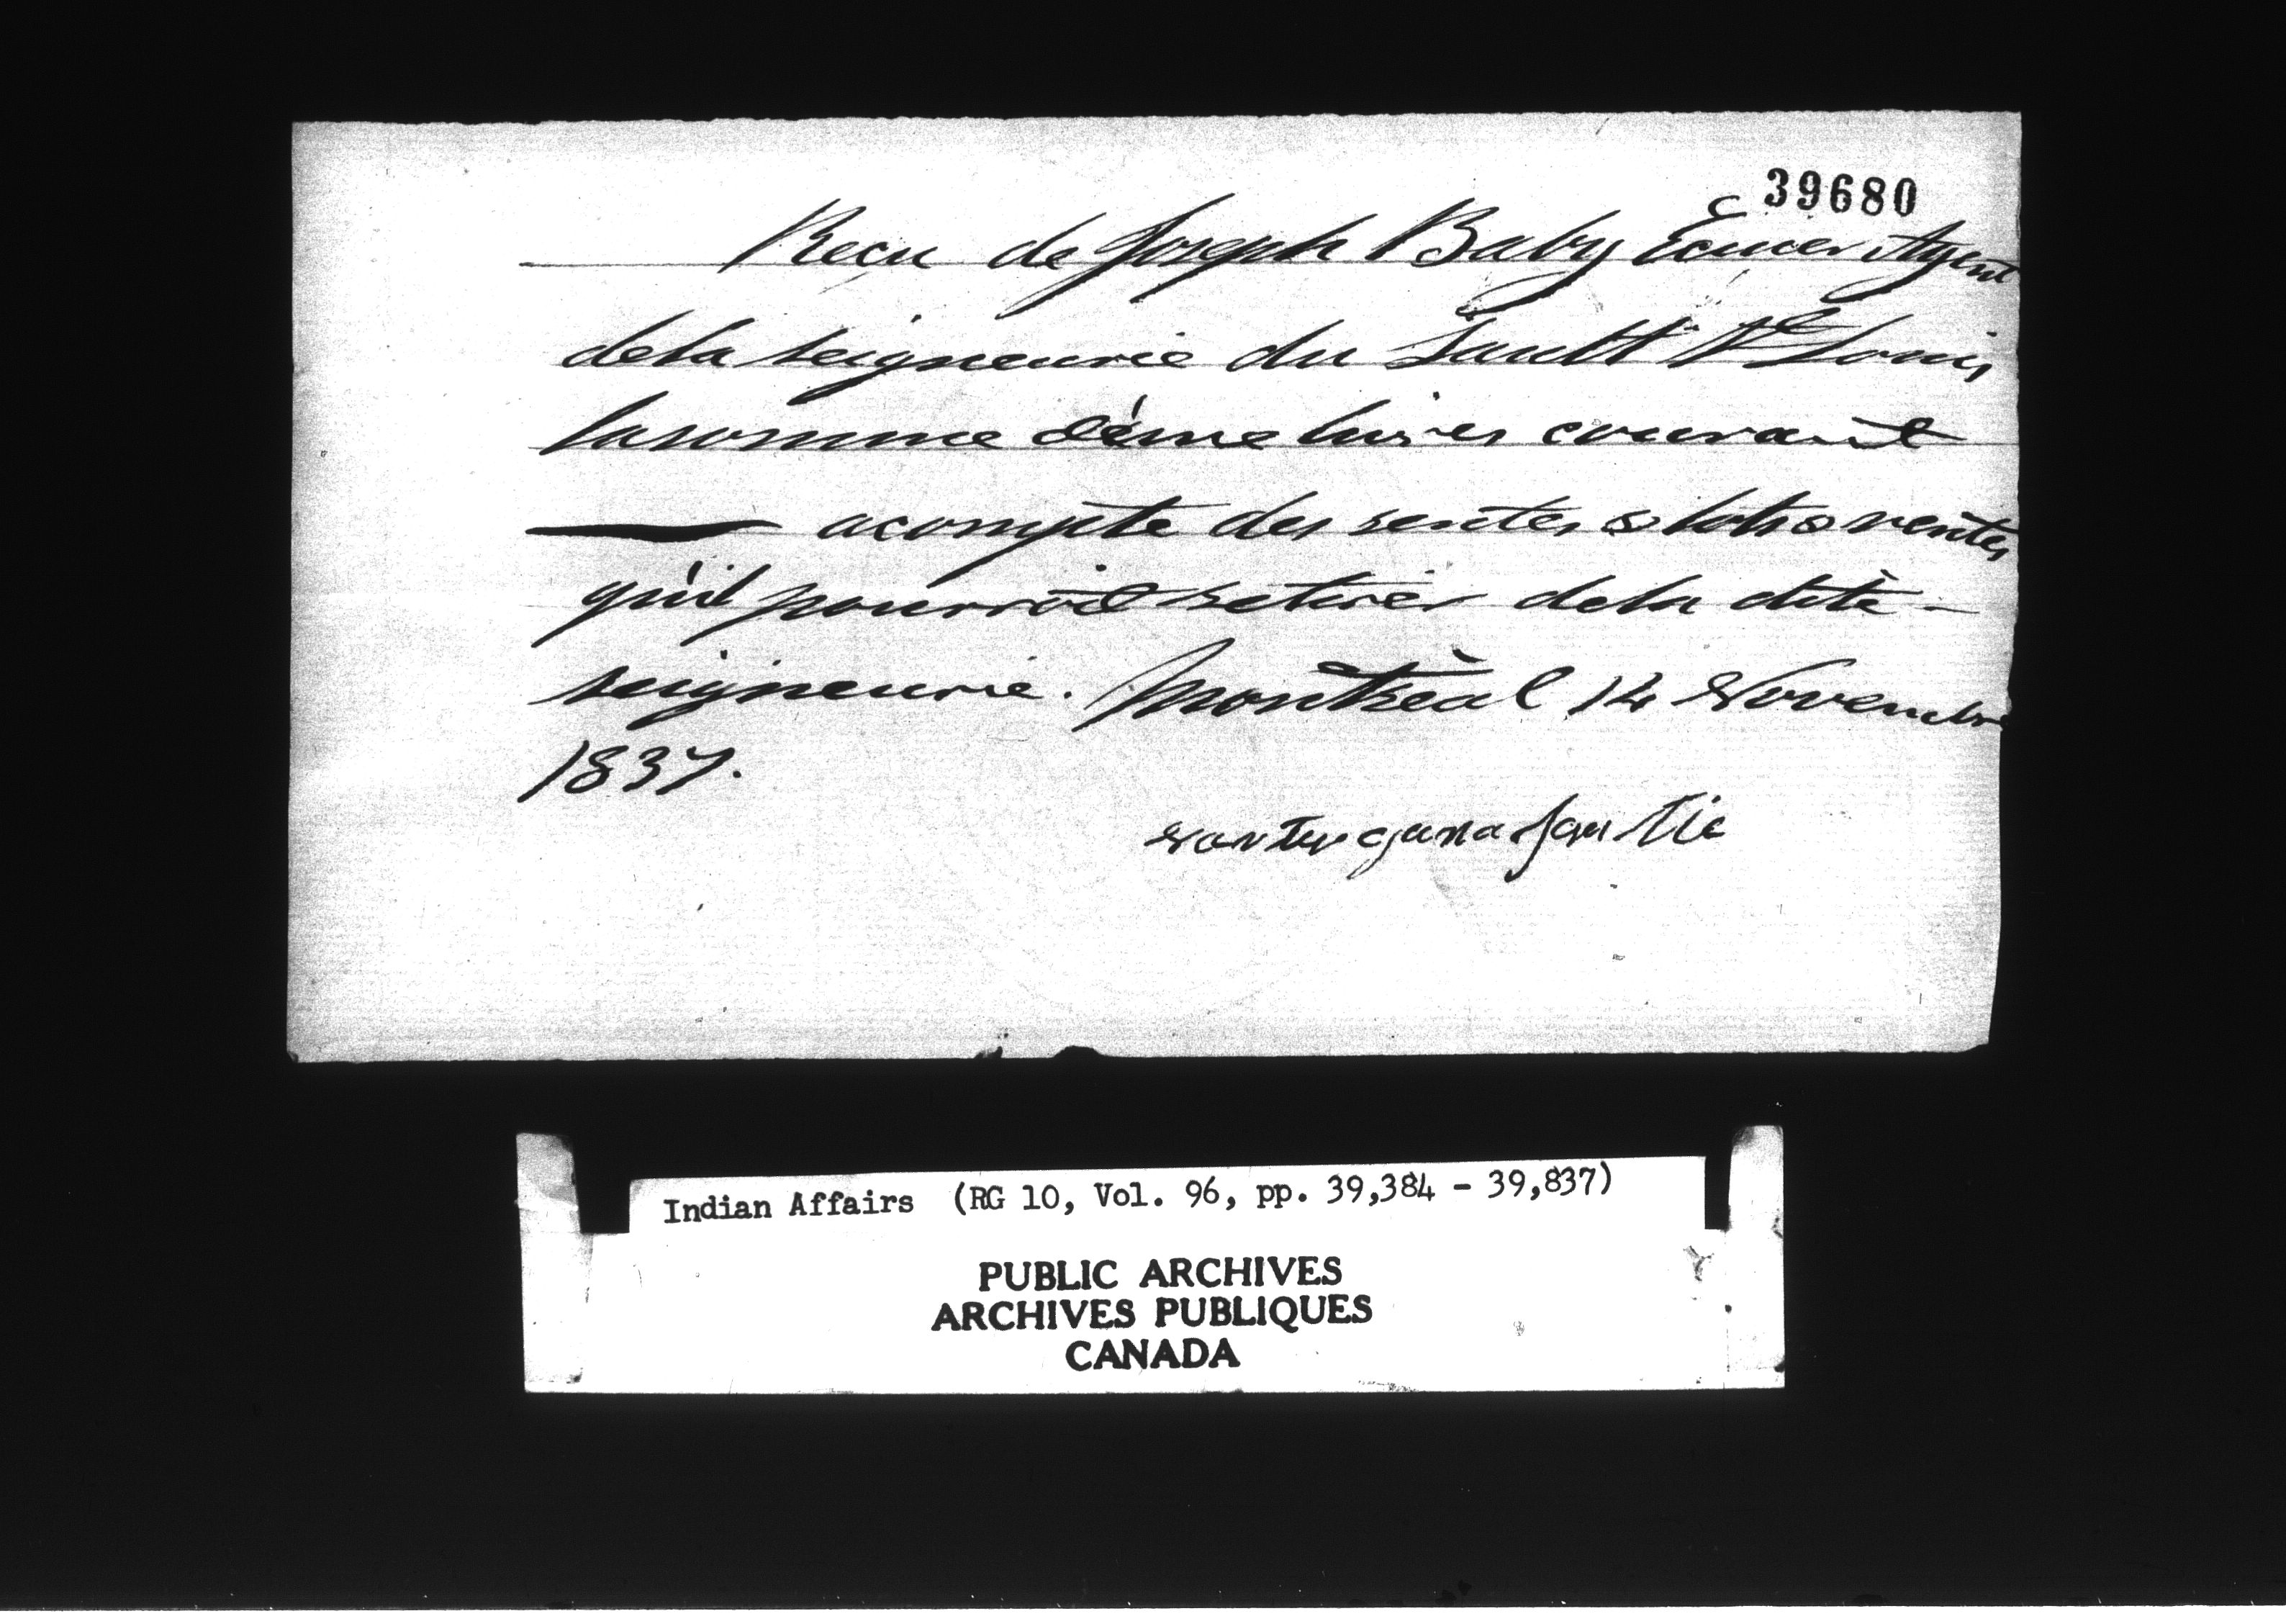 39680
Recu de Joseph Baby Ecuier Agent
dela seigneurie du Sault St Louis
lasomme d'une livres courant
acompte des rentes & lots & ventes
qu'il pourroit retirer dela dite -
seigneurie. Montréal 14 Novembre
1837.
Indian Affairs (RG 10, Vol. 96, pp. 39,384 - 39,837)
PUBLIC ARCHIVES
ARCHIVES PUBLIQUES
CANADA